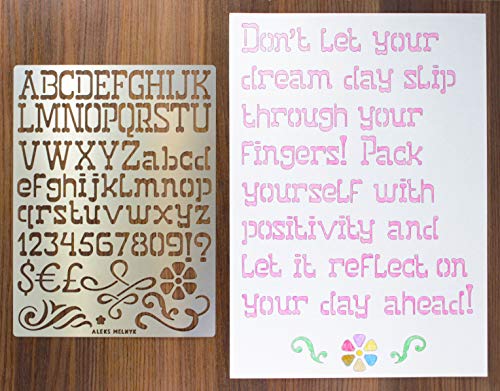 ABCDEFGHIJK
LMNOPQRSTU
VWXYZabcd
efghijklmnop
qrstuvwxyz
1234567809!?
$€£
ALEKS MELNYK
Don't let your
dream day slip
through your
fingers! Pack
yourself with
positivity and
let it reflect on
your day ahead!